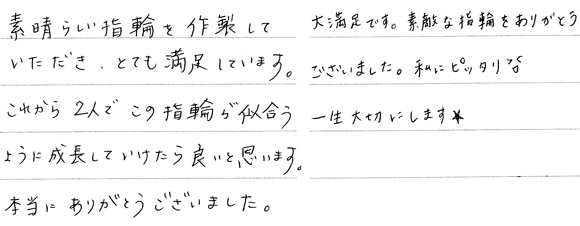 素晴らしい指輪を作製して
いただき、とても満足しています。
これから2人でこの指輪が似合う
ように成長していけたら良いと思います。
本当にありがとうございました。
大満足です。素敵な指輪をありがとう
ございました。私にピッタリな
一生大切にします★